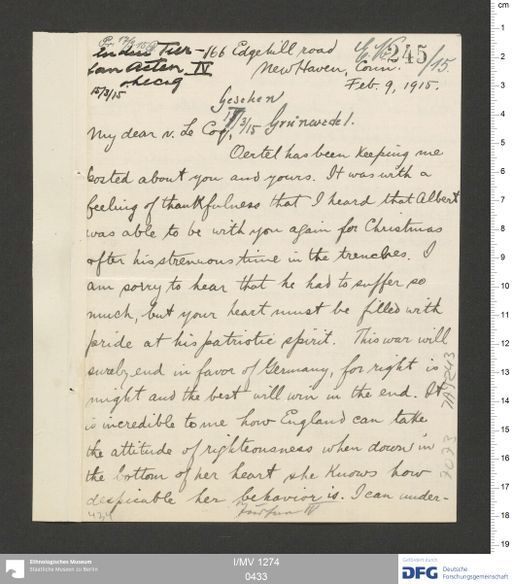 166 Edgehill road
New Haven, Conn.
Feb. 9, 1915.
E. No 245/15.
15/3/15
Gesehen
17/3/15 Grünwedel.
My dear v. Le Coq,
Oertel has been keeping me
posted about you and yours. It was with a
feeling of thankfulness that I heard that Albert
was able to be with you again for Christmas
after his strenuous time in the trenches. I
am sorry to hear that he had to suffer so
much, but your heart must be filled with
pride at his patriotic spirit. This war will
surely end in favor of Germany, for right is
might and the best will win in the end. It
is incredible to me how England can take
the attitude of righteousness when down in
the bottom of her heart she knows how
despicable her behavior is. I can under-
434
Ethnologisches Museum
Staatliche Museen zu Berlin
I/MV 1274
0433
Gefördert durch
DFG Deutsche
Forschungsgemeinschaft
cm
1
2
3
4
5
6
7
8
9
10
11
12
13
14
15
16
17
18
19